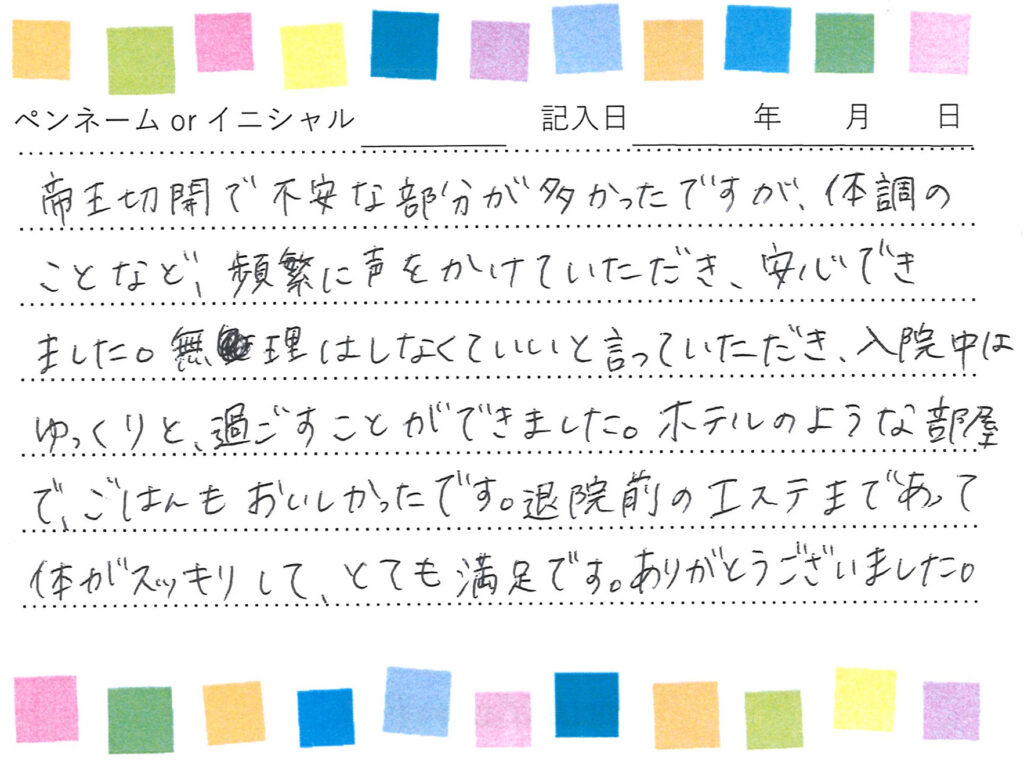 ペンネーム or イニシャル 記入日 年 月 日
帝王切開で不安な部分が多かったですが、体調の
ことなど、頻繁に声をかけていただき、安心でき
ました。無理はしなくていいと言っていただき、入院中は
ゆっくりと、過ごすことができました。ホテルのような部屋
で、ごはんもおいしかったです。退院前のエステまであって
体がスッキリして、とても満足です。ありがとうございました。